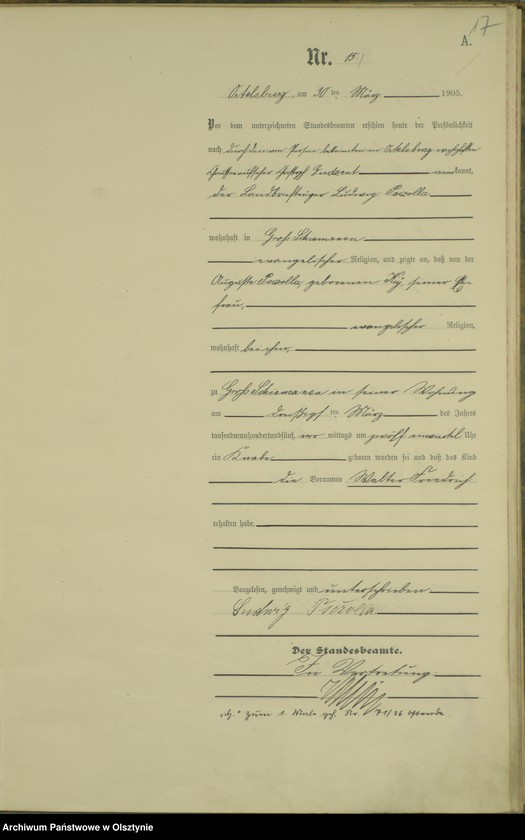 17
A.
Nr. 15
Ortelsburg, am 30 ten März 1905.
Vor dem unterzeichneten Standesbeamten erschien heute der Persönlichkeit
nach durch den von Person bekannten in Ortelsburg wohnhaften
kannt,
der Landbriefträger Ludwig Pszolla
wohnhaft in Groß Schiemanen
evangelischer Religion, und zeigte an, daß von der
Auguste Pszolla, geborenen Kij, seiner Ehe-
frau,
evangelischer Religion,
wohnhaft bei ihm,
zu Groß Schiemanen in seiner Wohnung
am ten März des Jahres
tausendneunhundertundfünf, vor mittags um zwölf einviertel Uhr
ein Knabe geboren worden sei und daß das Kind
die Vornamen Walter Friedrich
erhalten habe.
Vorgelesen, genehmigt und unterschrieben
Ludwig Pszolla
Der Standesbeamte.
In Vertretung.
zum 1. Male geh. Nr. 71/36
Archiwum Państwowe w Olsztynie